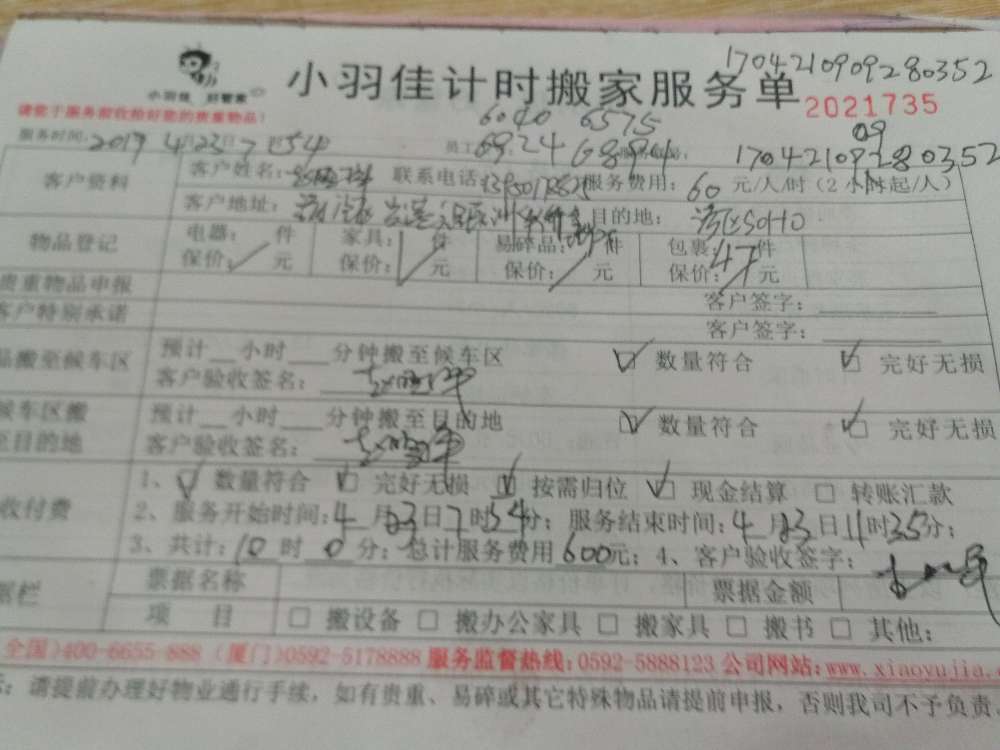 1704210909280352
小羽佳 好管家
小羽佳计时搬家服务单
2021735
请您于服务前收拾好您的贵重物品!
6040 6575
服务时间: 2017 4月23日7时54 员工 6924 09 1704210928 0352
客户资料 客户姓名: 联系电话: 服务费用: 60 元/人/时 (2小时起/人)
客户地址: 目的地: 湾区SOHO
物品登记 电器: 件 家具: 件 易碎品: 件 包裹: 47件
保价: 元 保价: 元 保价: 元 保价: 元
贵重物品申报 客户签字:
客户特别承诺 客户签字:
品搬至候车区 预计 小时 分钟搬至候车区 ☑ 数量符合 ☑ 完好无损
客户验收签名:
候车区搬 预计 小时 分钟搬至目的地 ☑ 数量符合 ☑ 完好无损
至目的地 客户验收签名:
1、☑ 数量符合 ☑ 完好无损 ☑ 按需归位 ☑ 现金结算 □ 转账汇款
收付费 2、服务开始时间: 4月23日7时54分; 服务结束时间: 4月23日11时35分;
3、共计: 10时0分; 总计服务费用600元; 4、客户验收签字:
据栏 票据名称 票据金额
项 目 □ 搬设备 □ 搬办公家具 □ 搬家具 □ 搬书 □ 其他:
全国)400-6655-888 (厦门)0592-5178888 服务监督热线: 0592-5888123 公司网站: www.xiaoyujia.
: 请提前办理好物业通行手续, 如有贵重、易碎或其它特殊物品请提前申报, 否则我司不予负责.